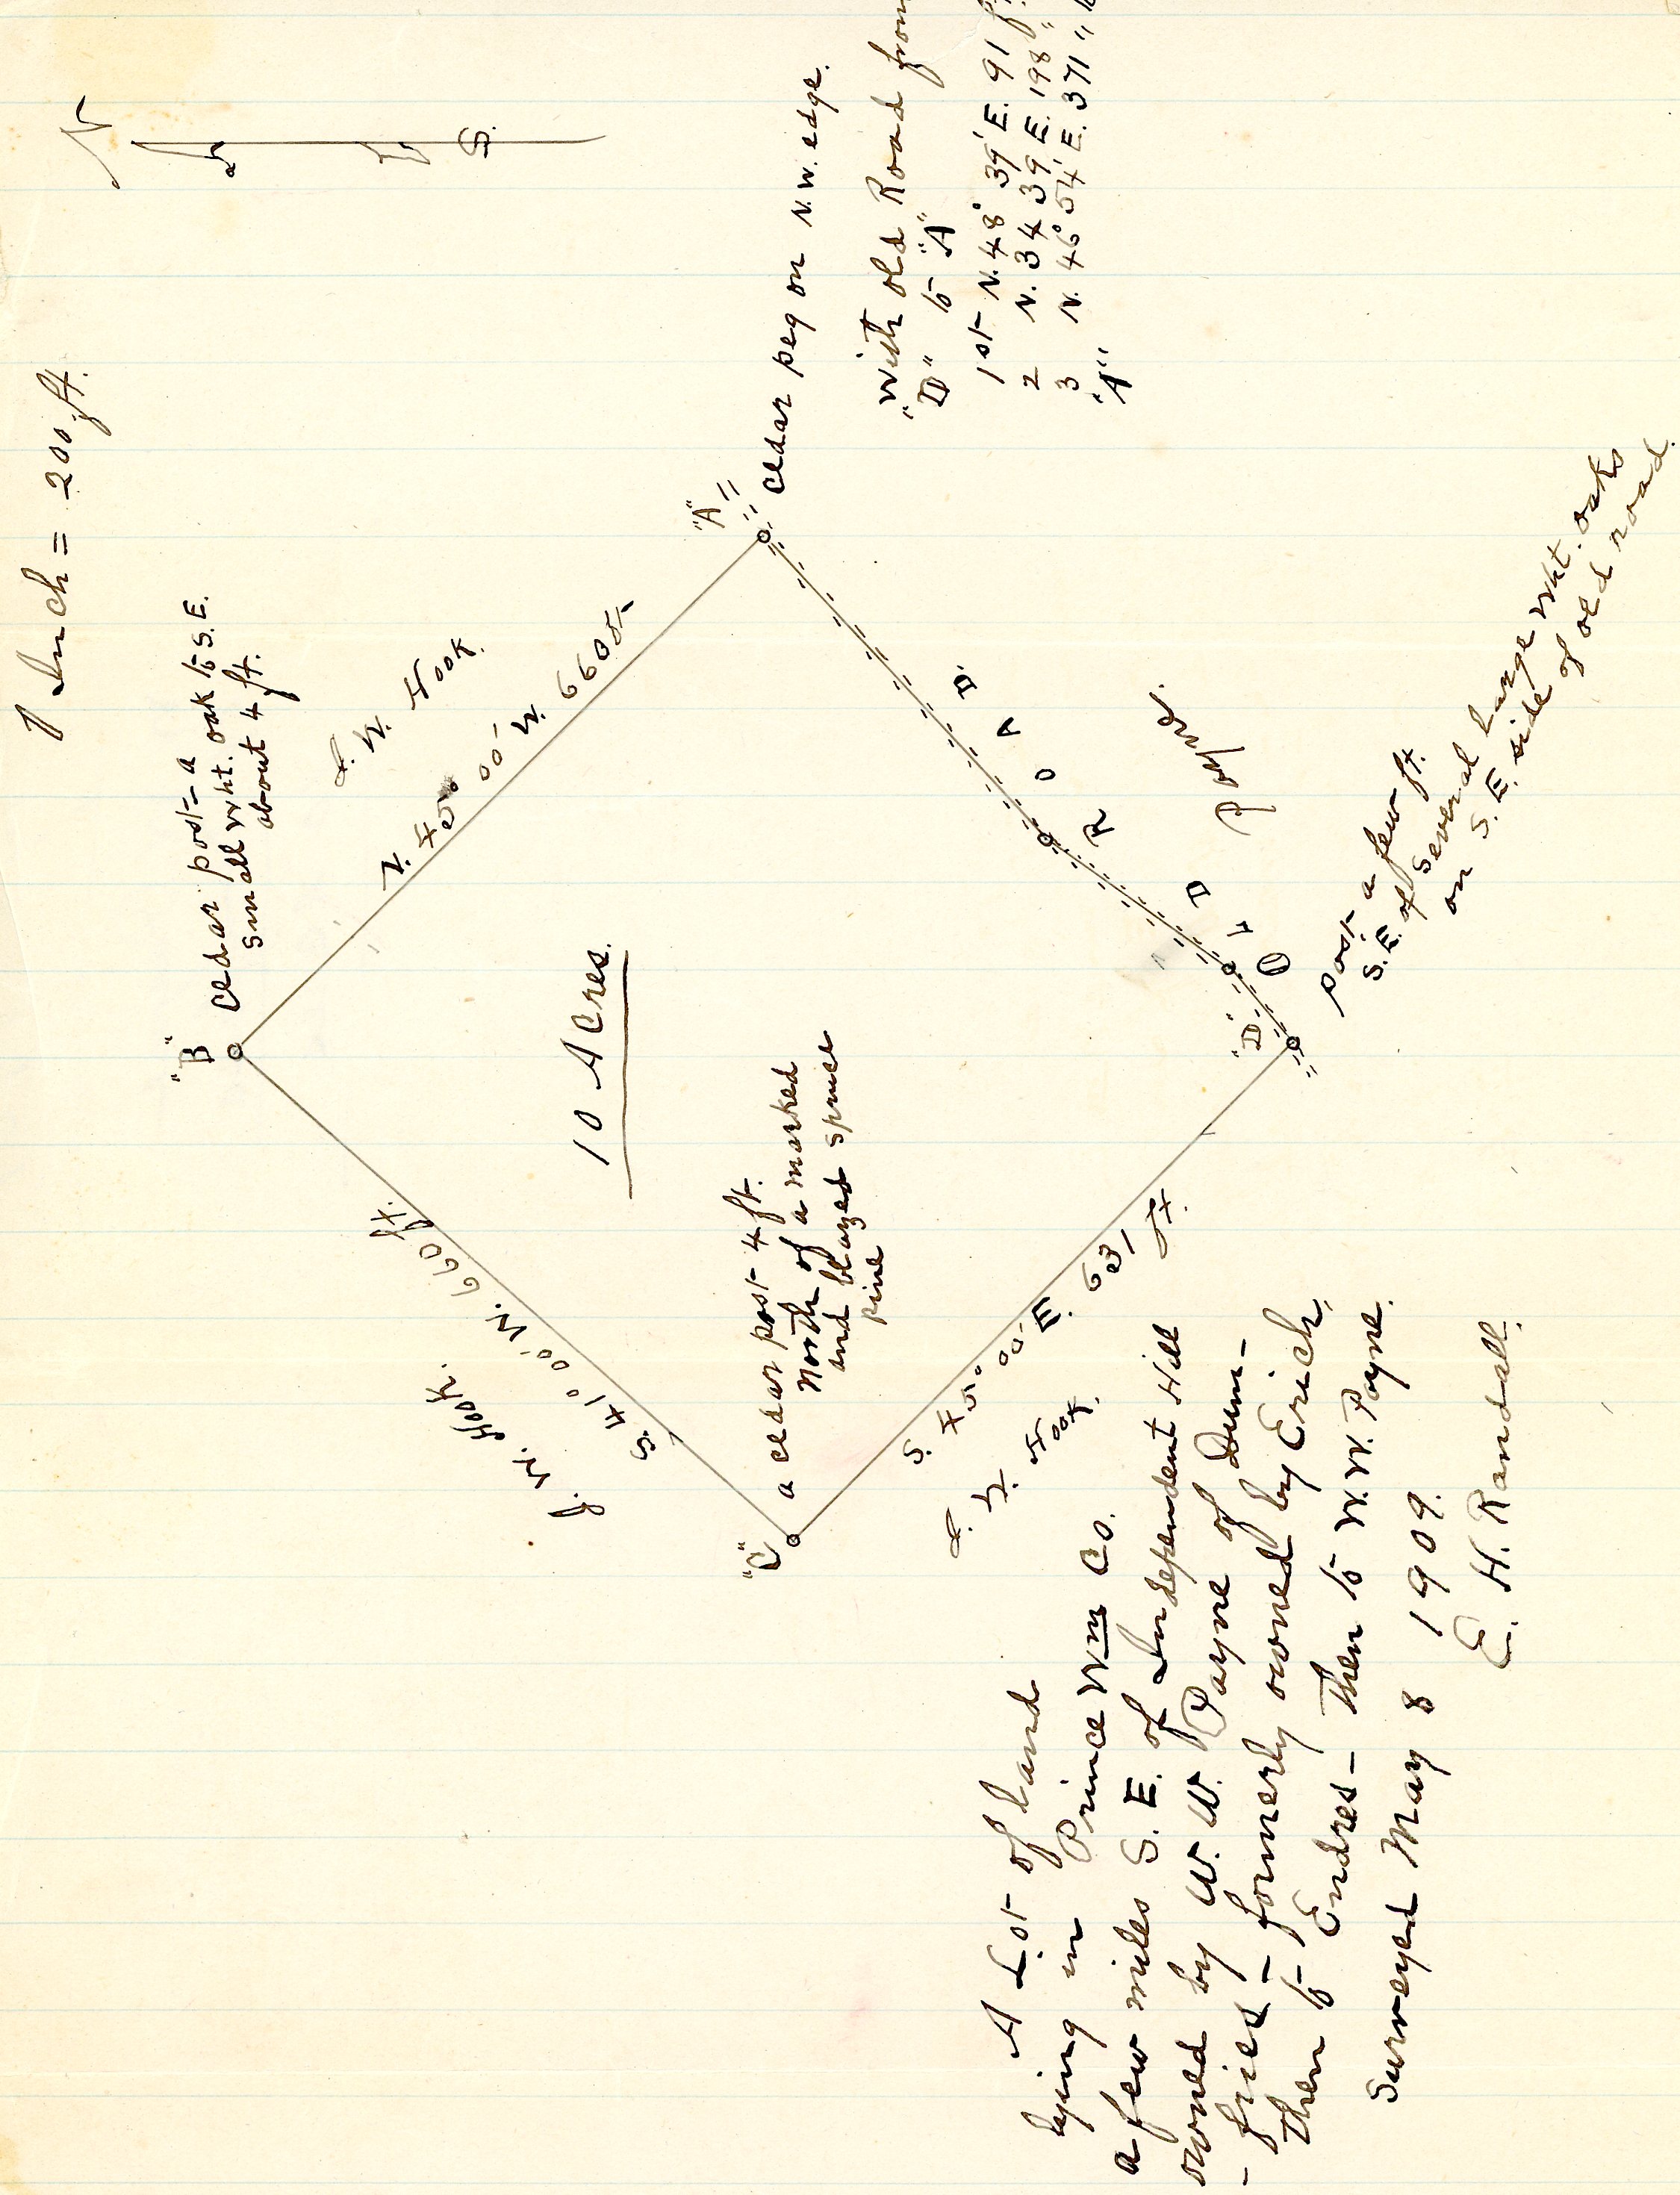 1 Inch = 200 ft.
N
S.
"B"
Cedar post - a
small wht. oak to S.E.
about 4 ft.
J. W. Hook.
N. 45° 00' W. 660 ft
"A"
Cedar peg on N.W. edge.
J. W. Hook.
S. 41° 00' W. 660 ft.
10 Acres.
"C"
a cedar post 4 ft.
North of a marked
and blazed spruce
pine
S. 45° 00' E. 631 ft.
J. W. Hook.
"D"
OLD ROAD
Payne.
Post a few ft.
S.E. of several large wht. oaks
on S.E. side of old road.
"With old Road from
"D" to "A"
1st N. 48° 39' E. 91 ft.
2 N. 34 39 E. 198 "
3 N. 46° 54' E. 371 "
"A"
A Lot of Land
lying in Prince Wm Co.
a few miles S. E. of Independent Hill
owned by W. W. Payne of Dum-
-fries - formerly owned by Erich,
then to Endres - Then to W. W. Payne.
Surveyed May 8 1909.
E. H. Randall.